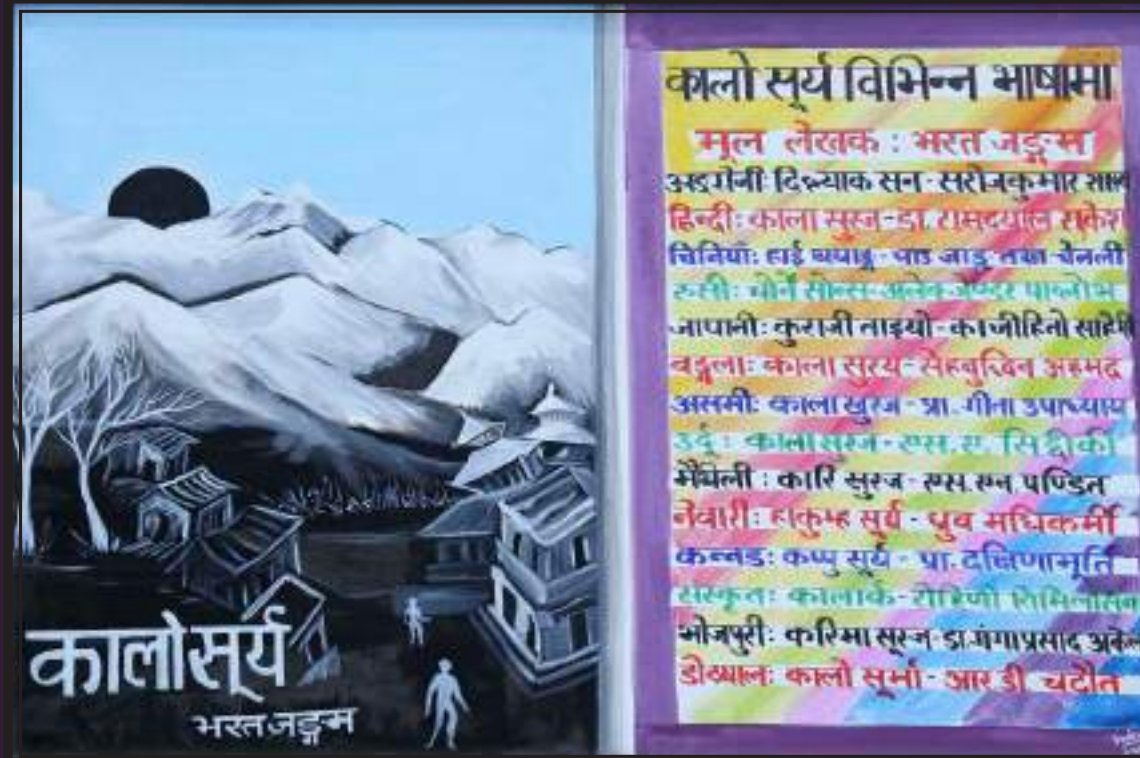 कालो सूर्य
भरत जङ्गम
कालो सूर्य विभिन्न भाषामा
मूल लेखक : भरत जङ्गम
अङग्रेजी दि ब्ल्याक सन - सरोजकुमार
हिन्दी: काला सुरज - डा. रामदयाल राकेश
चिनियाँ: हाई - तथा
रुसी: चोर्ने सोन्स - अलेकजेण्डर
जापानी: कुरोजी ताइयो - काजीहितो
बङ्गला: काला सुरय - सैहबुद्दिन अहमद
असमी: काला सुरज - प्रा. गीता उपाध्याय
उर्दु : काला सुरज - एस. ए. सिद्दीकी
मैथिली : कारि सुरज - एस. एन. पण्डित
नेवारी: हाकुम्ह सूर्य - ध्रुव मधिकर्मी
कन्नड: कप्पु सूर्य - प्रा. दक्षिणामूर्ति
संस्कृत: कालार्क - रोहिणी
भोजपुरी: करिमा सूरज - डा. गंगाप्रसाद अकेला
डोट्याल: कालो सूर्मा - आर डी चटौत